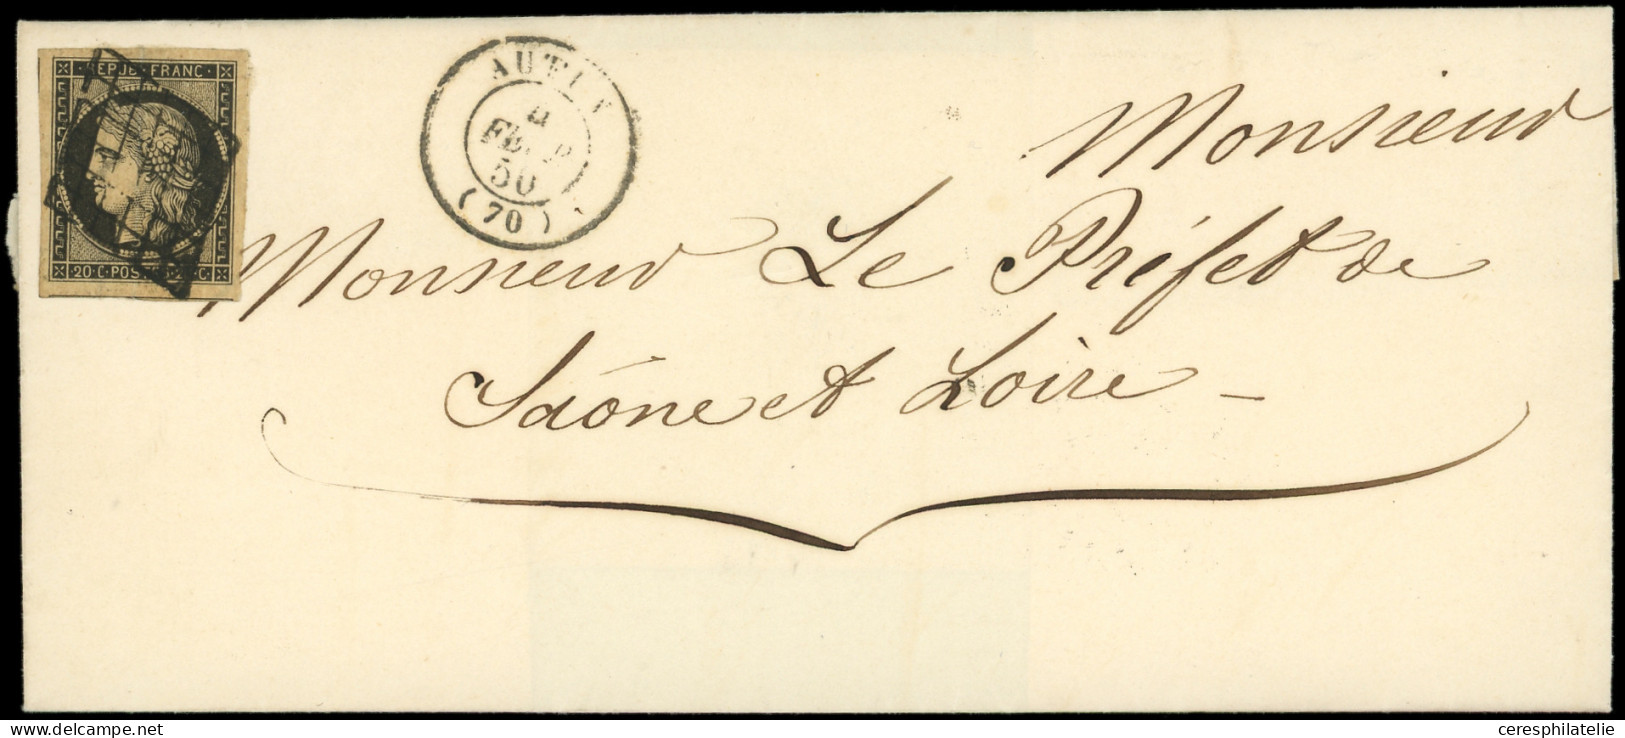 REPUB·FRANC
20·C·POSTE·20·C
AUTUN
4
FEVR
50
(70)
Monsieur
Monsieur Le Préfet de
Saône et Loire –
ceresphilatelie